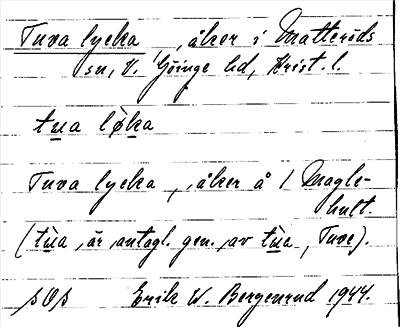 Tuva lycka, åker i Matteröds
sn, V. Göinge hd, Krist. l.
tu̲a lø̀ka
Tuva lycka, åker å 1 Magle-
hult.
(tù̲a, är antagl. gen. av tù̲a, Tuve).
SOS Erik W. Bergenrud 1944.